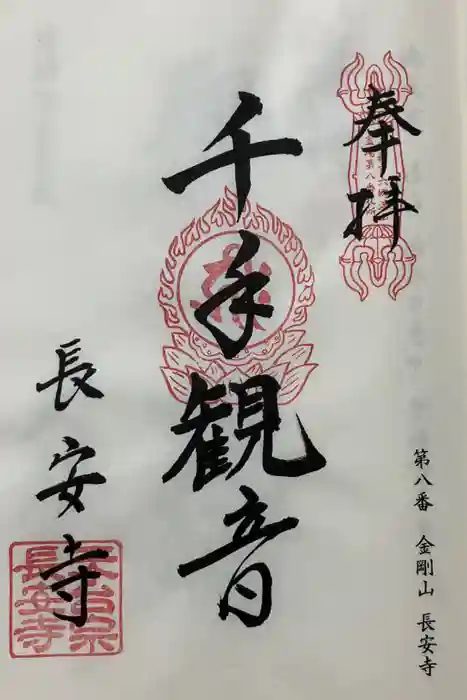 奉拝
千手観音
長安寺
天台宗
長安寺
第八番 金剛山 長安寺